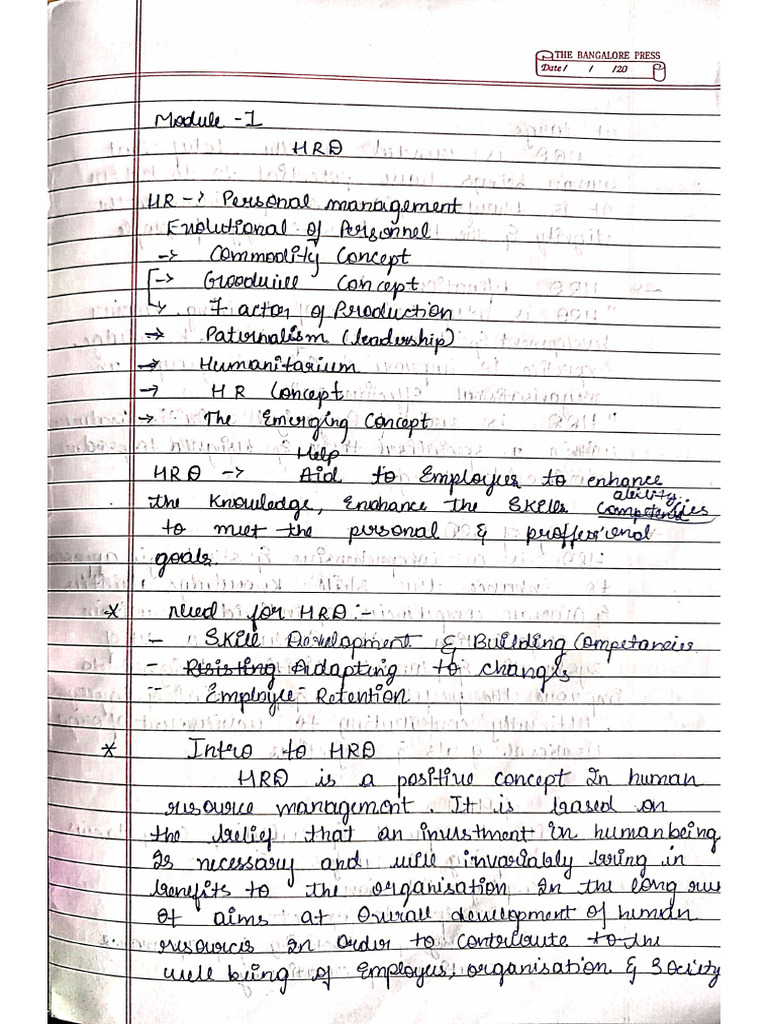 THE BANGALORE PRESS
Date / / /20
Module - I
HRD
HR -> Personal management
Evolutional of Personnel
-> Commodity Concept
-> Grooduill Concept
-> Factor of Production
-> Paturnalism (leadership)
-> Humanitarium
-> HR Concept
-> The Emerging Concept
Help
HRD -> Aid to Employees to enhance
ability
the Knowledge, Enahance the Skills Competencies
to meet the personal & proffessional
goals.
* need for HRD :-
- Skill Development & Building Competancies
- Resisting Adapting to changes
- Employee Retention
* Intro to HRD
HRD is a positive concept In human
resource management. It is based on
the belief that an investment in humanbeing
Is necessary and will invariably bring in
benefits to the organisation In the long run
It aims at Overall development of human
resources In Order to Contribute to the
well being of Employees, organisation & Society